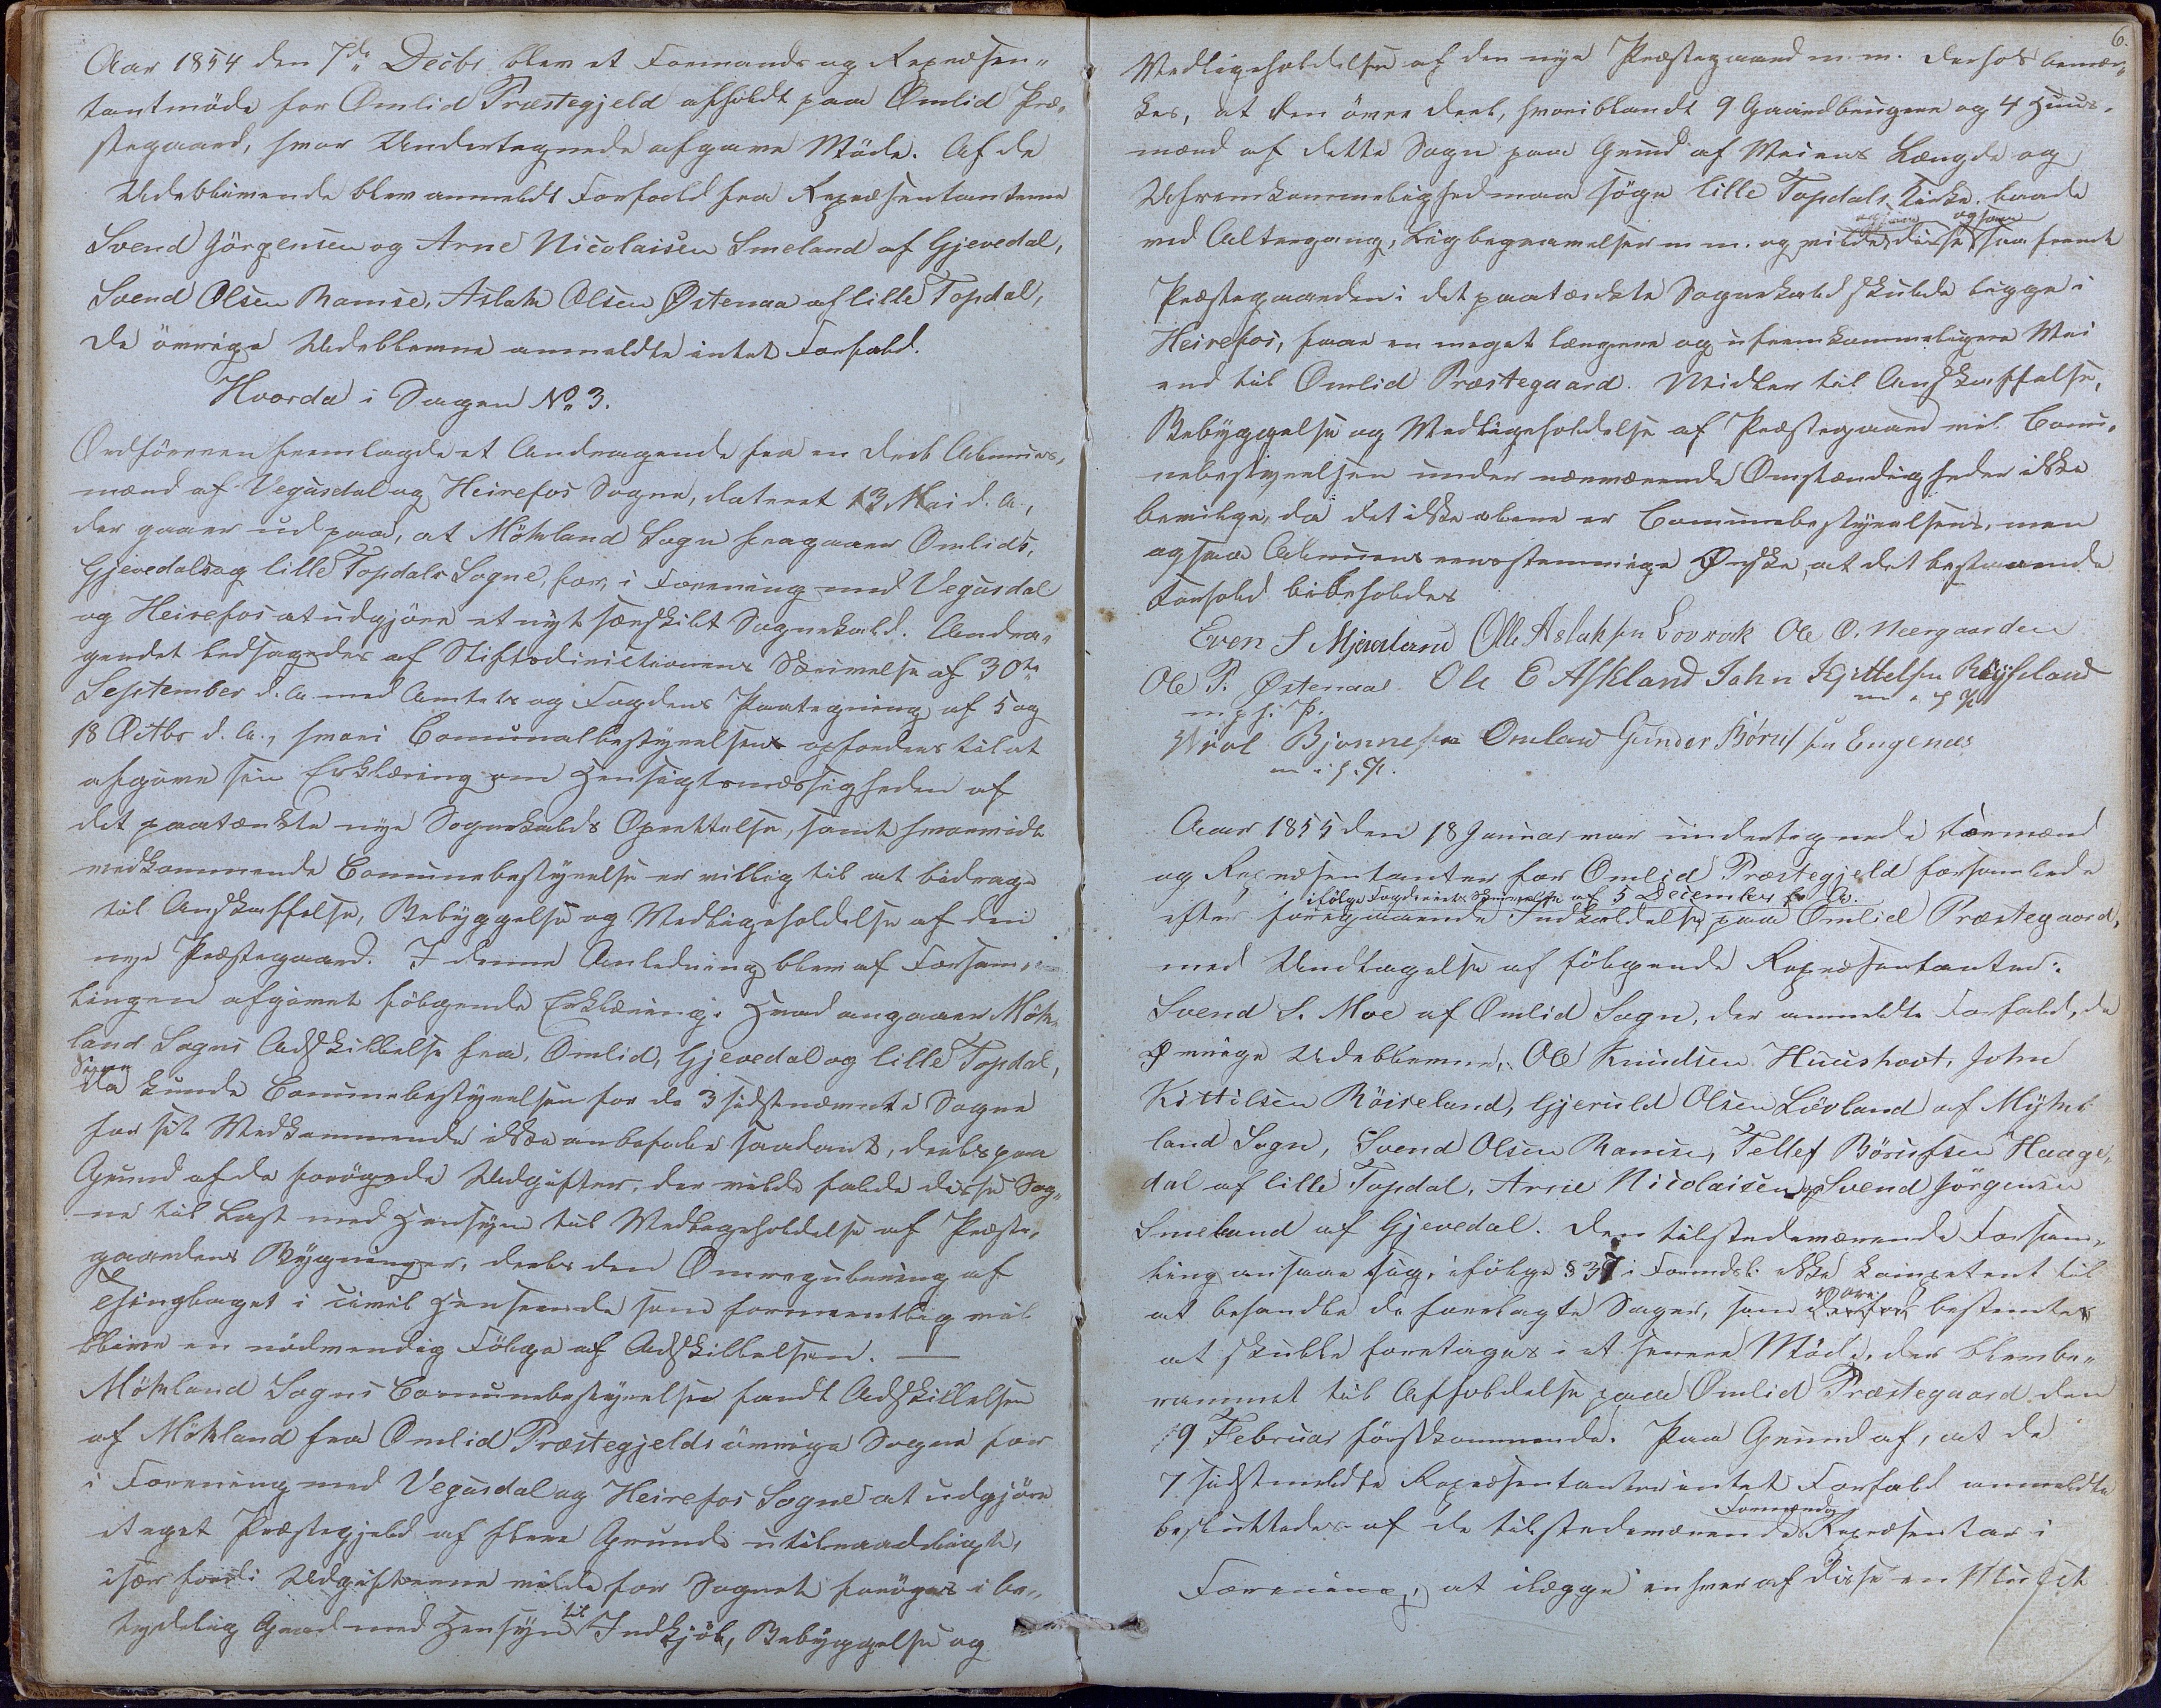 Aar 1854 den 7de Decbr blev et Formands og Repræsen-
tantmöde for Omlid Præstegjeld afholdt paa Omlid Præ-
stegaard, hvor Undertegnede afgave Möde. Af de
Udeblivende blev anmeldt Forfald fra Repræsentanterne
Svend Jörgensen og Arne Nicolaisen Smeland af Gjevedal,
Svend Olsen Ramse, Aslak Olsen Østenaa af lille Topdal,
de övrige Udeblevne anmeldte intet Forfald.
Hvorda i Sagen No 3.
Ordföreren fremlagde et Andragende fra en Deel Almues-
mænd af Vegusdal og Heirefos Sogne, dateret 13 Mai d. A.,
der gaaer ud paa, at Mökland Sogn fragaaer Omlids,
Gjevedals og lille Topdals Sogne, for, i Forening med Vegusdal
og Heirefos at udgjöre et nyt særskilt Sognekald. Andra-
gendet ledsagedes af Stiftsdirectionens Skrivelse af 30te
September d. A. med Amtets og Fogdens Paategning af 5 og
18 Octbr d. A., hvori Comunalbestyrelsen opfordres til at
afgive sin Erklæring om Hensigtsmæssigheden af
det paatænkte nye Sognekalds Oprettelse, samt hvorvidt
vedkommende Comunebestyrelse er villig til at bidrage
til Anskaffelse, Bebyggelse og Vedligeholdelse af den
nye Præstegaard. I denne Anledning blev af Forsam-
lingen afgivet fölgende Erklæring: Hvad angaaer Mök-
land Sogns Adskillelse fra Omlid, Gjevedal og lille Topdal,
Sogne
da kunde Comunebestyrelsen for de 3 sidstnævnte Sogne
for sit Vedkommende ikke anbefale saadant, deels paa
Grund af de forögede Udgifter, der vilde falde disse Sog-
ne til Last med Hensyn til Vedligeholdelse af Præste-
gaardens Bygninger, deels den Omregulering af
Thinglaget i civil Henseende som formeentlig vil
blive en nödvendig Fölge af Adskillelsen. —
Mökland Sogns Comunebestyrelse fandt Adskillelsen
af Mökland fra Omlid Præstegjelds övrige Sogne for
i Forening med Vegusdal og Heirefos Sogne at udgjöre
eget Præstegjeld af flere Grunde utilraadeligt,
især fordi Udgifterne vilde for Sognet foröges i be-
til
tydelig Grad med Hensyn Indkjöb, Bebyggelse og
6.
Vedligeholdelse af den nye Præstegaard m. m. Derhos bemær-
kes, at den övre Deel, hvoriblandt 9 Gaardbrugere og 4 Huus-
mænd af dette Sogn paa Grund af Veiens Længde og
Ufremkommelighed maa söge lille Topdals Kirke, baade
ogsaa
ved Altergang, Ligbegravelser m. m. og vilde disse saafremt
Præstegaarden i det paatænkte Sognekald skulde ligge i
Heirefos, faae en meget længere og ufremkommeligere Vei
end til Omlid Præstegaard. Midler til Anskaffelse,
Bebyggelse og Vedligeholdelse af Præstegaard vil Comu-
nebestyrelsen under nærværende Omstændigheder ikke
bevilge, da det ikke alene er Comunebestyrelsens, men
ogsaa Almuens eenstemmige Ønske, at det bestaaende
Forhold bibeholdes
Even S Mjaaland Olle Aslaksen Lovrak Ole O. Neergaarden
Ole P. Østenaae Ole E Askland John Kjittelsen Röyseland
m. p. P. m. i. P.
Bjonnesen Omland Gunder Børufsen Engenæs
m. i. P.
Aar 1855 den 18 Januar var undertegnede Formænd
og Repræsentanter for Omlid Præstegjeld forsamlede
ifölge Fogderiets Skrivelse af 5 December f. A.
efter foregaaende Indkaldelse paa Omlid Præstegaard,
med Undtagelse af fölgende Repræsentanter:
Svend S. Moe af Omlid Sogn, der anmeldte Forfald, de
Øvrige Udeblevne, Ole Knudsen Huushovt, John
Kittilsen Röiseland, Gjeruld Olsen Lövland af Mykland
land Sogn, Svend Olsen Ramse, Tellef Börufsen Hauge-
dal af lille Topdal, Arne Nicolaisen og Svend Jörgensen
Smeland af Gjevedal. Den tilstedeværende Forsam-
ling ansaae sig, ifölge § 37 i Formdsl. ikke kompetent til
at behandle de forelagte Sager, som derfor bestemtes
at skulle foretages i et senere Möde, der blev be-
rammet til Afholdelse paa Omlid Præstegaard den
19 Februar förstkommende. Paa Grund af, at de
7 sidstmeldte Repræsentanter intet Forfald anmeldte
Formænd og
besluttedes af de tilstedeværende Repræsentar i
Forening, at ilægge enhver af disse en Mulct